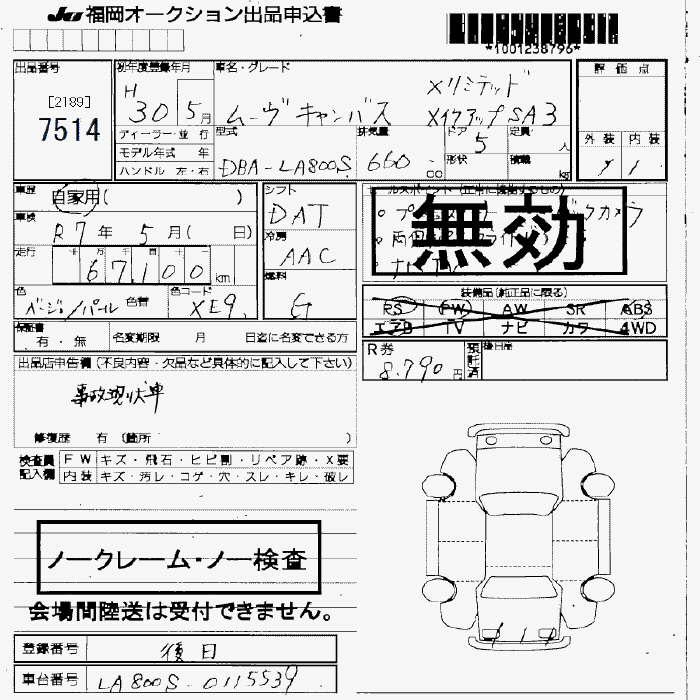 JU 福岡オークション出品申込書
*1001238796*
出品番号
[2189]
7514
初年度登録年月
H
30 5 月
車名・グレード
Xリミテッド
ムーヴ キャンバス XメイクアップSA3
ディーラー・並 行
モデル年式 年
ハンドル 左・右
型式
DBA-LA800S
排気量
660
cc
ドア
5
形状
定員
人
積載
kg
評 価 点
外 装 内 装
車歴
自家用( )
車検
R 7 年 5 月( 日)
走行
十 万 千 百 十 一
67,100 km
色
ベージュ/パール
色替
色コード
XE9
シフト
DAT
冷房
AAC
燃料
G
セールスポイント (正常に機能するもの)
無効
カメラ
装備品(純正品に限る)
RS PW AW SR ABS
エアB TV ナビ カワ 4WD
保証書
有・無
名変期限 月 日迄に名変できる方
R券
8,790 円
預託済
後日品
出品店申告欄(不良内容・欠品など具体的に記入して下さい)
事故現状車
修復歴 有 (箇所 )
検査員記入欄
FW キズ・飛石・ヒビ割・リペア跡・X要
内装 キズ・汚レ・コゲ・穴・スレ・キレ・破レ
ノークレーム・ノー検査
会場間陸送は受付できません。
登録番号 後日
車台番号 LA800S-0115539